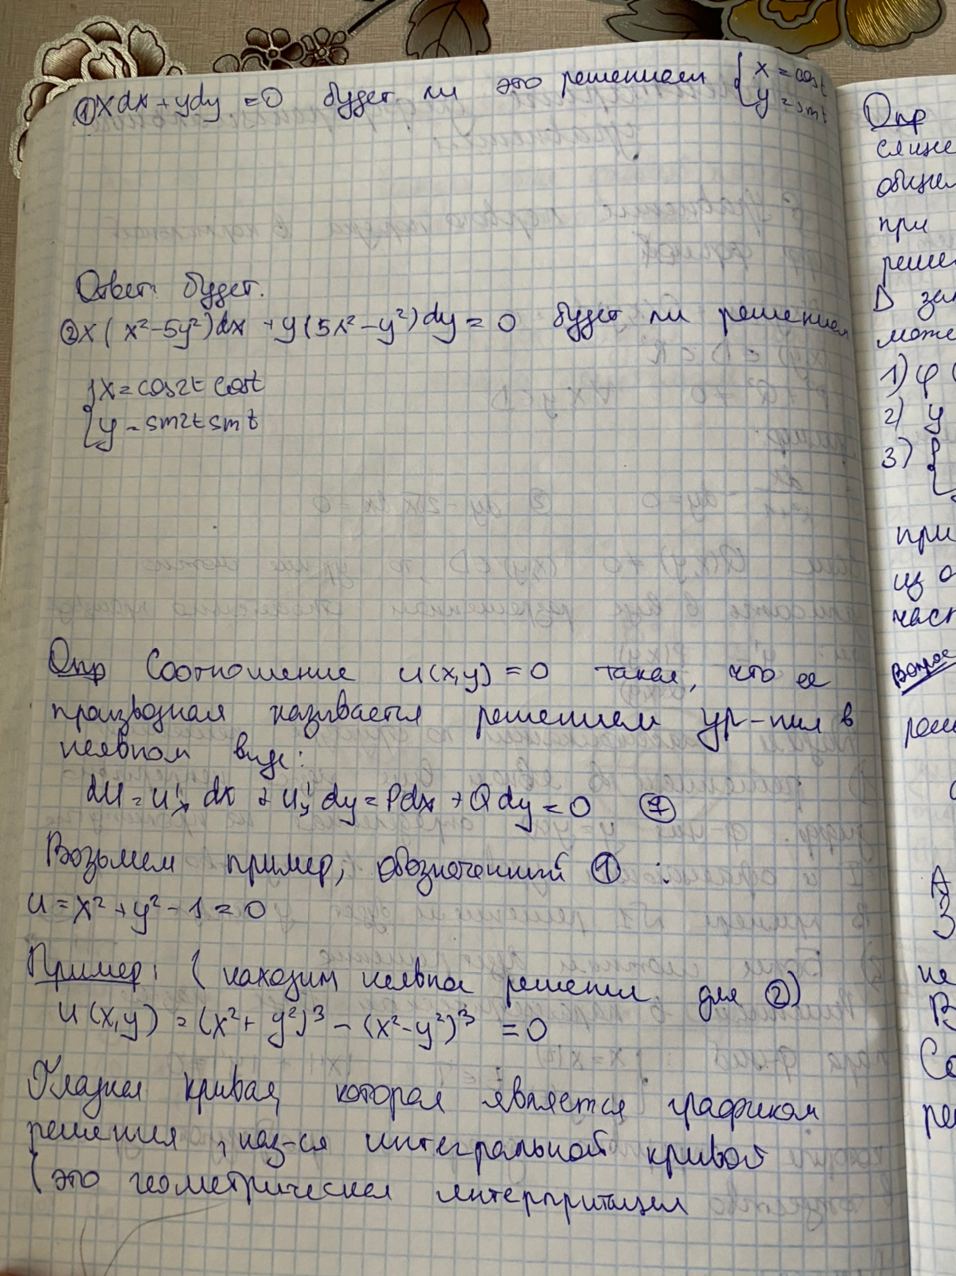 ① xdx + ydy = 0 будет ли это решением { x = cost
y = sint
Ответ: будет.
② x(x²-5y²)dx + y(5x²-y²)dy = 0 будет ли решением
{ x = cos2t cost
y = sin2t sint
Опр Соотношение u(x,y) = 0 такая, что ее
производная называется решением ур-ния в
неявном виде:
dU = U'ₓ dx + U'ᵧ dy = Pdx + Qdy = 0 ⑦
Возьмем пример, обозначенный ① :
u = x² + y² - 1 = 0
Пример: (находим неявное решение для ②)
u(x,y) = (x² + y²)³ - (x² - y²)³ = 0
Гладкая кривая, которая является графиком
решения, наз-ся интегральной кривой
(это геометрическая интерпритация
Опр
при
1) φ (
2) y
3) {
при
из о
част
Вопрос
А
З
не
В
Со
ре